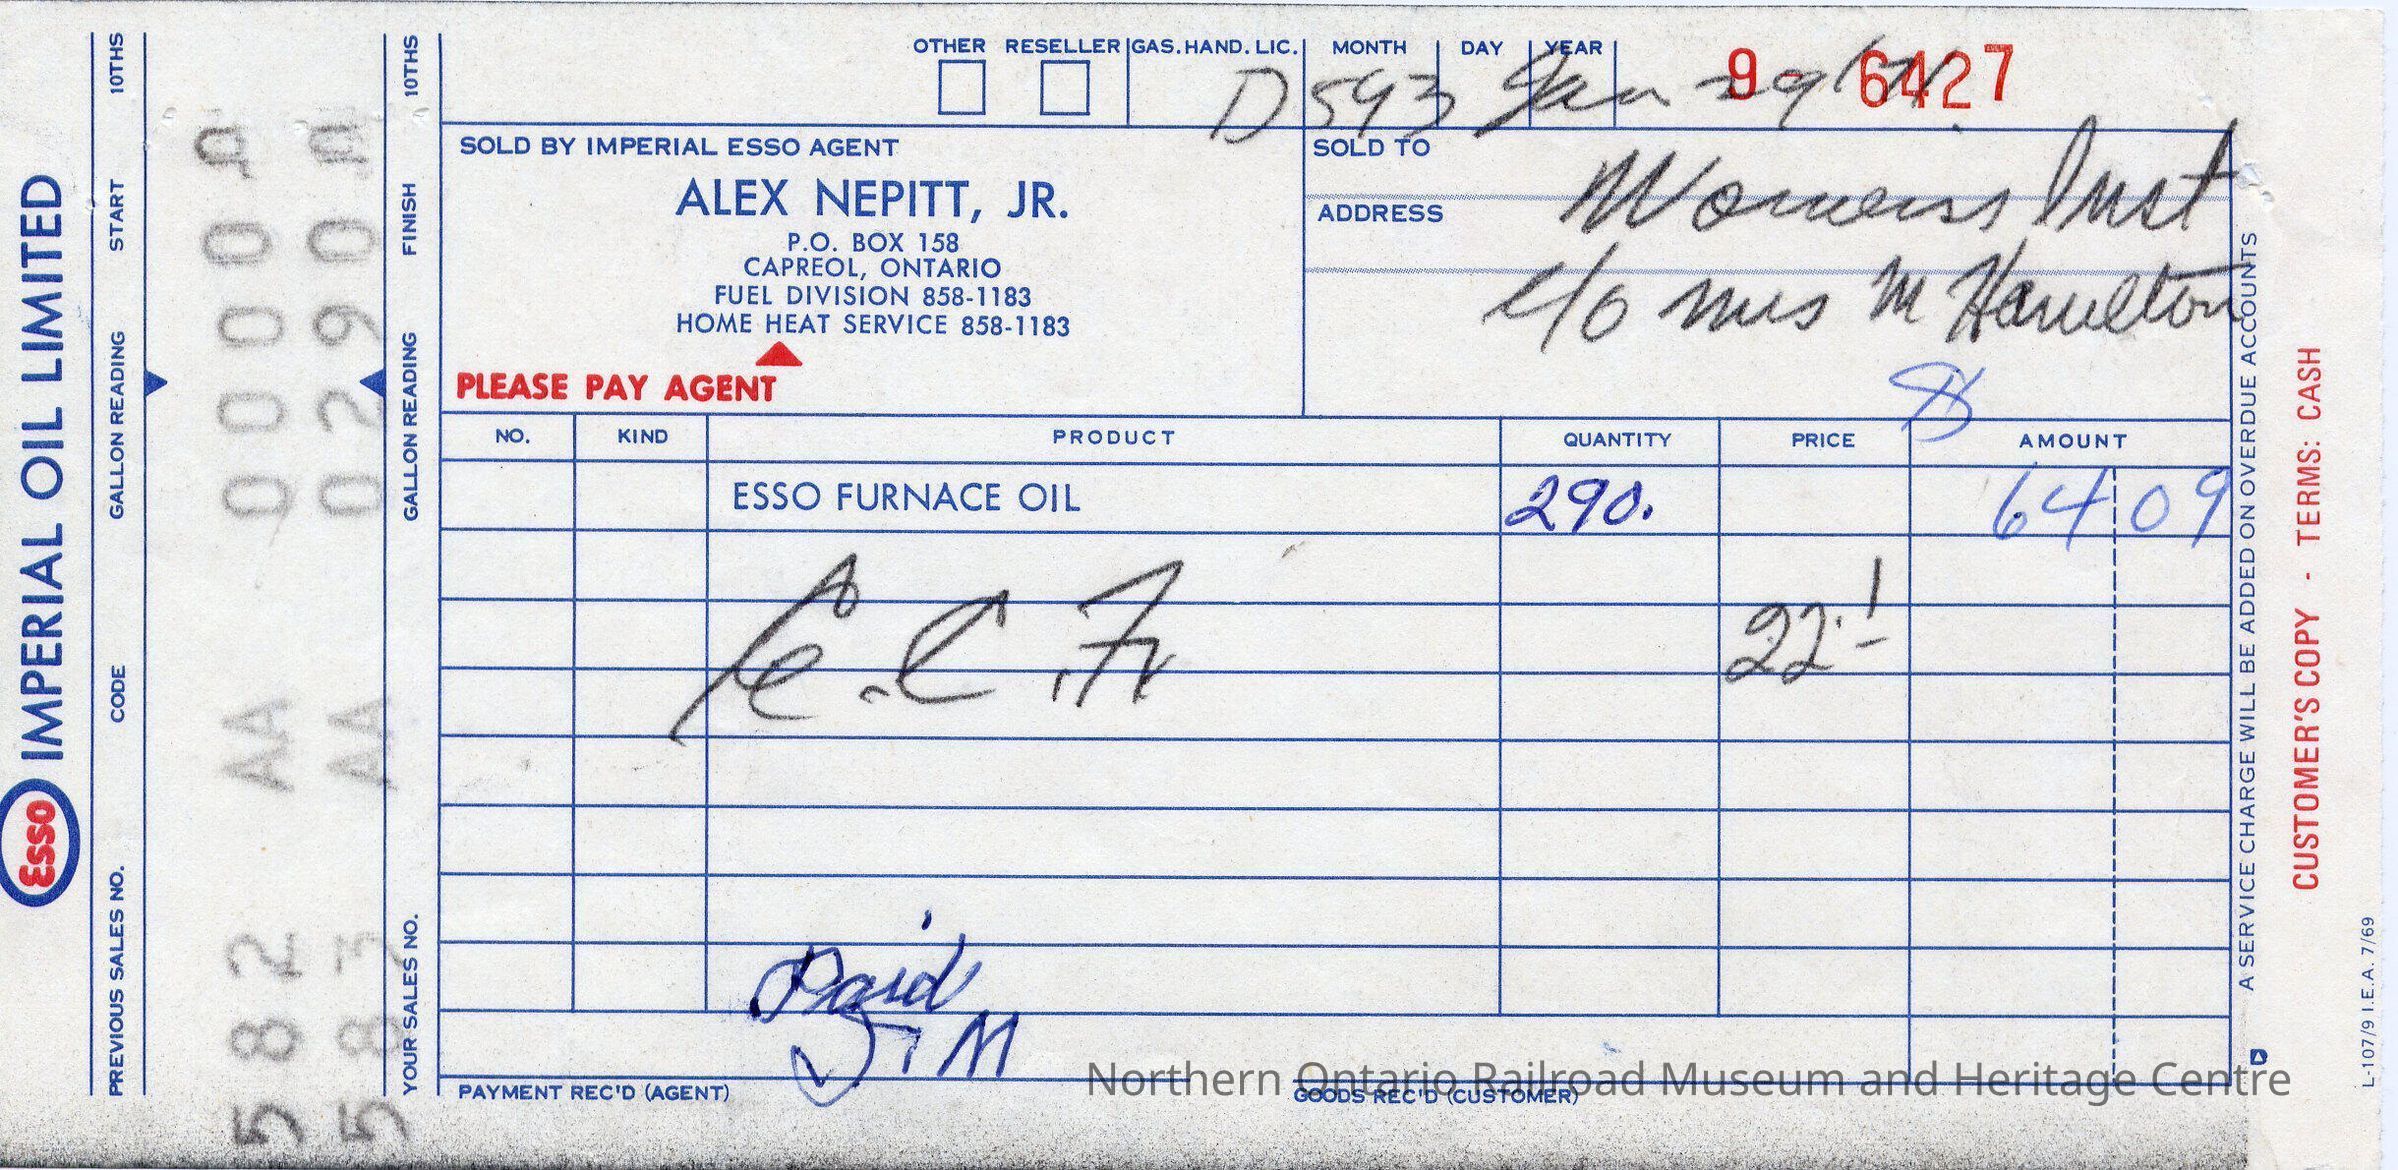 OTHER RESELLER GAS. HAND. LIC. MONTH DAY YEAR
9 - 6427
D 593 Jan 29/71.
SOLD BY IMPERIAL ESSO AGENT
ALEX NEPITT, JR.
P.O. BOX 158
CAPREOL, ONTARIO
FUEL DIVISION 858-1183
HOME HEAT SERVICE 858-1183
PLEASE PAY AGENT
SOLD TO
Womens Inst
ADDRESS
c/o Mrs M Hamilton
NO. KIND PRODUCT QUANTITY PRICE AMOUNT
ESSO FURNACE OIL 290. 64 09
22.1
Paid
PAYMENT REC'D (AGENT)
GOODS REC'D (CUSTOMER)
Northern Ontario Railroad Museum and Heritage Centre
Esso IMPERIAL OIL LIMITED
PREVIOUS SALES NO. CODE GALLON READING START 10THS
582 AA 00000
583 AA 02900
YOUR SALES NO. GALLON READING FINISH 10THS
A SERVICE CHARGE WILL BE ADDED ON OVERDUE ACCOUNTS
CUSTOMER'S COPY - TERMS: CASH
L-107/9 I.E.A. 7/69